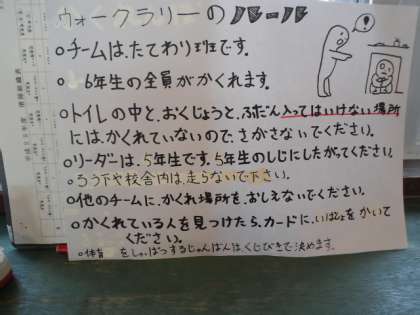 ウォークラリーのルール
○チームは、たてわり班です。
○6年生の全員がかくれます。
○トイレの中と、おくじょうと、ふだん入ってはいけない場所
には、かくれていないので、さがさないでください。
○リーダーは、5年生です。5年生のしじにしたがってください。
○ろう下や校舎内は、走らないで下さい。
○他のチームに、かくれ場所を、おしえないでください。
○かくれている人を見つけたら、カードに、いばしょをかいて
ください。
○体育をしゅっぱつするじゅんばんは、くじびきで決めます。